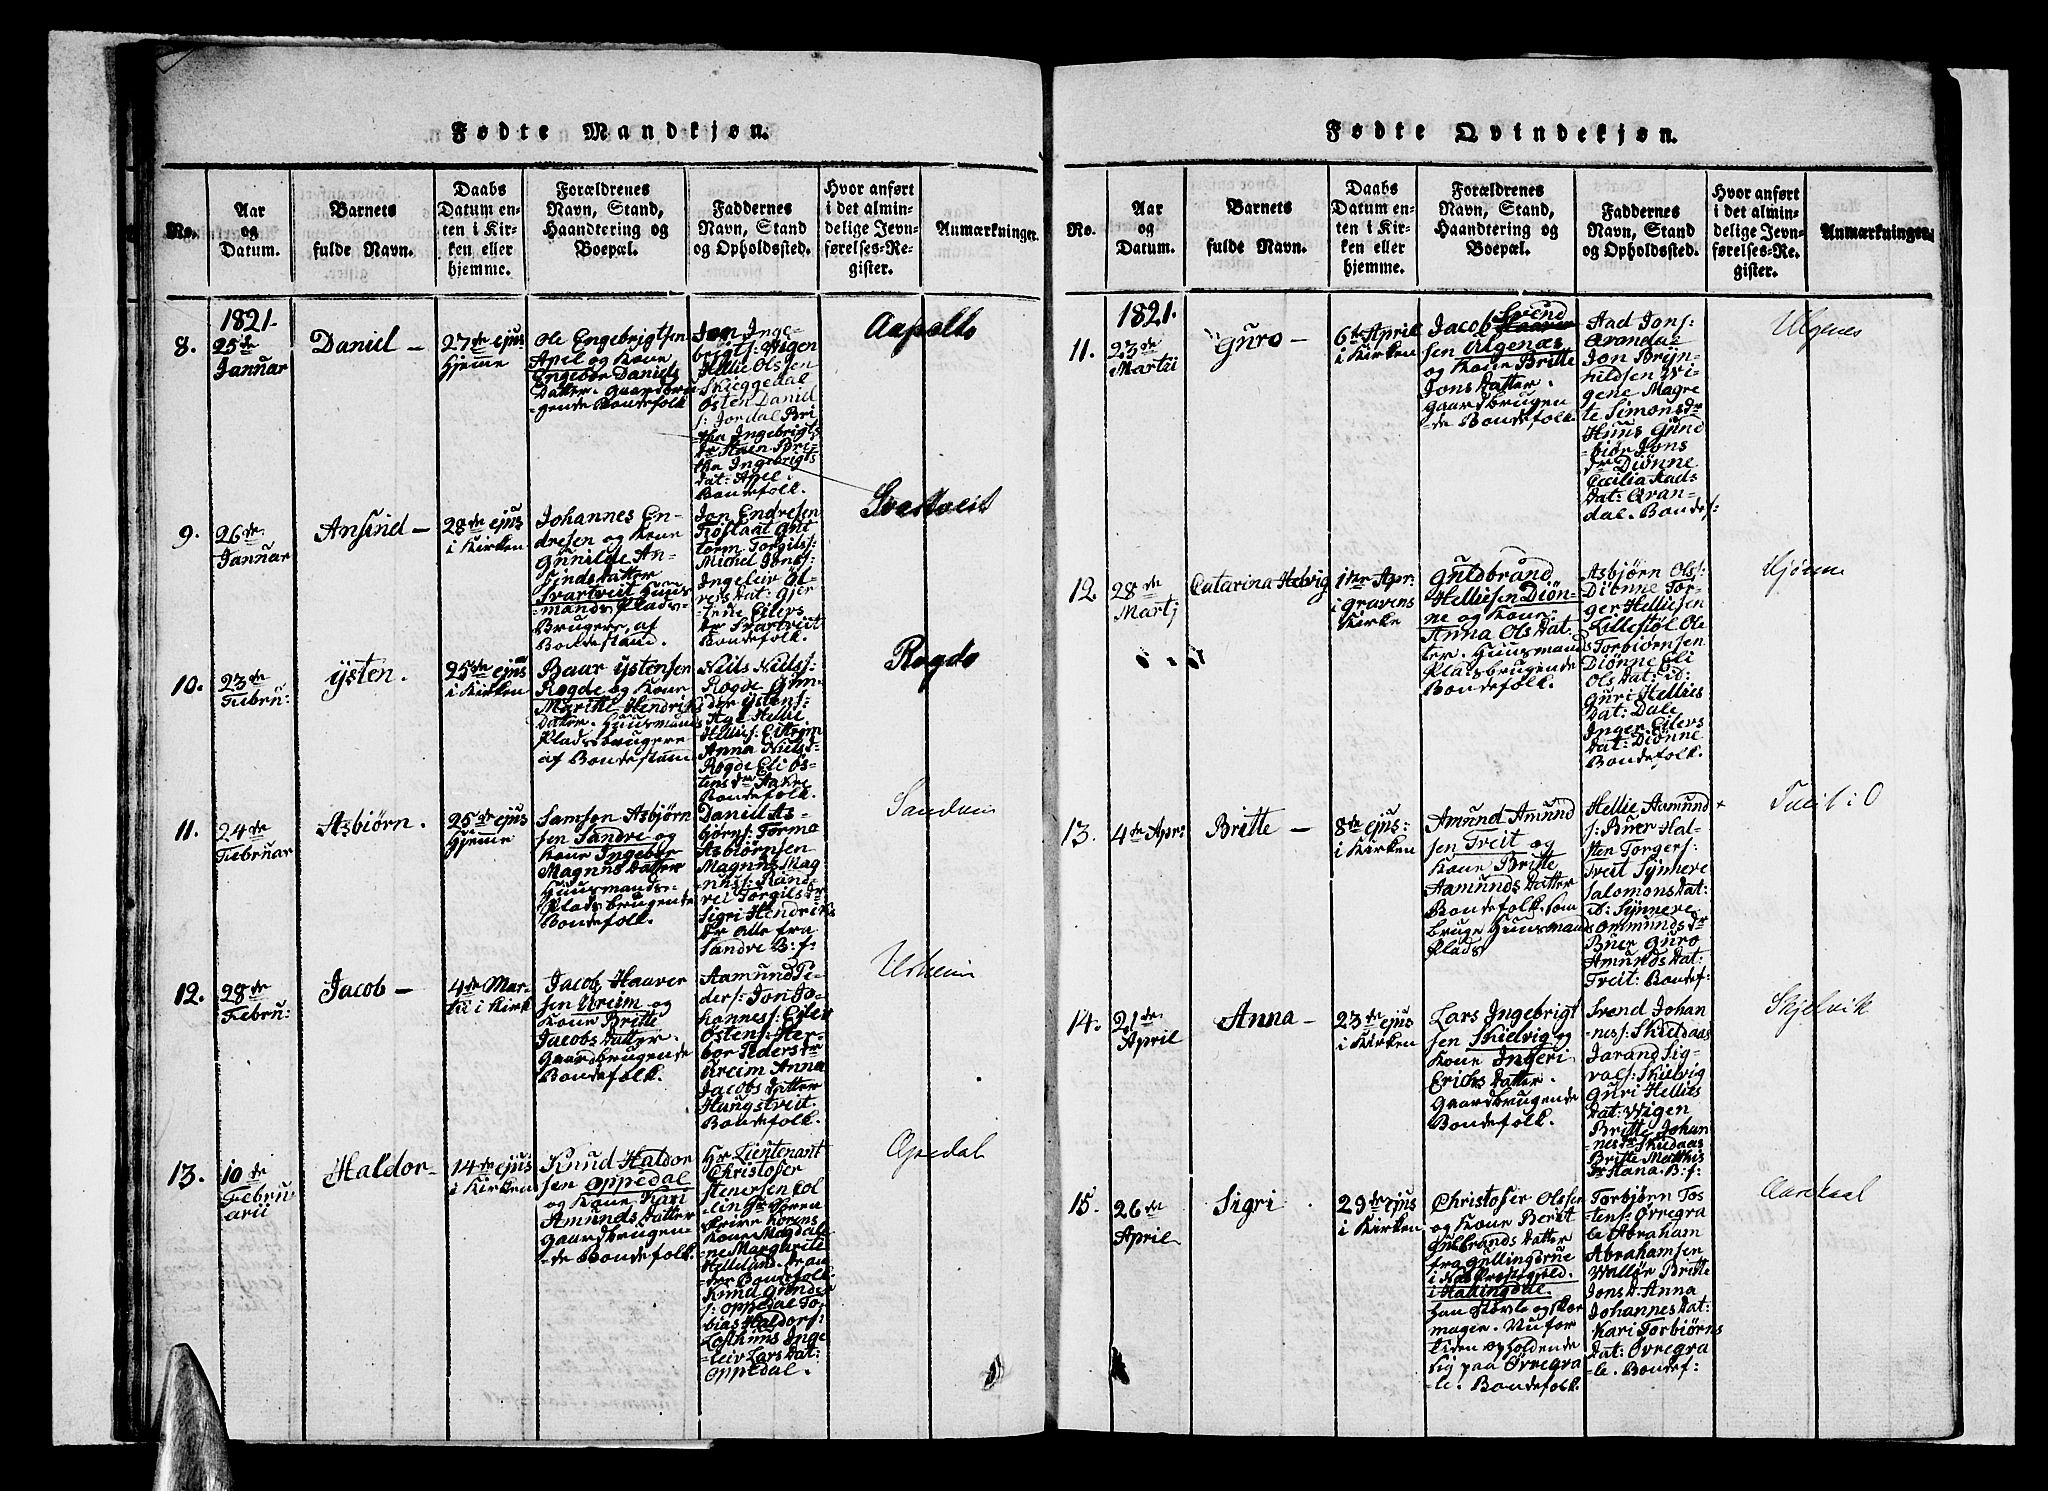 Fødte Mandkjøn.
No.
Aar
og
Datum.
Barnets
fulde Navn.
Daabs
Datum en-
ten i Kir-
ken eller
hjemme.
Forældrenes
Navn, Stand,
Haandtering og
Boepæl.
Faddernes
Navn, Stand
og Opholdssted.
Hvor anført
i det almin-
delige Jevn-
førelses-Re-
gister.
Anmærkninger.
8.
1821.
25de
Januar
Daniel –
27de ejus
Hjemme
Ole Engebrigtsen
Apel og Kone
Engebor Daniels
Datter. Gaardbru
-gende Bondefolk
Jon Inge-
brigts: Higen
Hellie Olssen
Skieggedal
Østen Daniel
s: Jordal Bri
-tha Ingebrigts
Dr Steen Bri-
tha Ingebrigts
Dat: Apel.
Bondefolk.
Aapolto
9.
26de
Januar
Ansind –
28de ejus
i Kirken
Johannes En-
dresen og Kone
Gunilde An-
sinds Datter
Svartveit Huus-
mands Plads-
Brugere, af
Bondestand.
Jon Endresen
Guttorm Torgils:
Michel Jons:
Ingeleiv Ol-
vers Dat: Gjer
trude Eilers
Dr Svartveit
Bondefolk.
Svartveit
10.
23de
Febru:
Ysten.
25de ejus
i Kirken
Baar Ystensen
Rogde og Kone
Maritte Hendriks
Datter. Huusmands
Pladsbrugere
af Bondestam
Niels Niels:
Rogde Gun-
der Ystens:
Age Hellie
Hellies: Eitreim
Anna Niels D-
Rogde Eli Øs-
tens Dr Aakre
Bondefolk.
Rogde
11.
24de
Februar
Asbiørn.
25de ejus
Hjemme
Samson Asbiørn
sen Sandre og
Kone Ingebor
Magnus Datter
Huusmands-
Pladsbrugende
Bondefolk.
Daniel As-
biørns: Tormo
Asbiørnsen
Magnus Mag-
nus: Ran-
vei Torgils Dr
Sigri Hendriks
Dr alle fra
Sandre B: f:
Sandven
12.
28de
Febru:
Jacob –
4de Mar-
tii i Kirk
Jacob Haaver
sen Ureim og
Kone Britte
Jacobs Datter.
Gaardbrugende
Bondefolk.
Aamund Pe-
ders: Jon Jo-
hannes: Eiler
Østens: Her-
bor Peders Dr
Ureim Anna
Jacobs Datter
Hungstveit.
Bondefolk.
Urheim
13.
10de
Febru
arii
Haldor-
14de ejus
i Kirken
Knud Haldor
sen Oppedal
og Kone Kari
Amunds Datter
Gaardbrugen
-de Bondefolk.
Hr Lieutenant
Christofer
Stenersen
Kone Magdale
ne Margrite
Helleland.
Bondefolk.
Knud Gunder
s: Oppedal To,
bias Haldors:
Lofthuus Inge
-leiv Lars Dat:
Oppedal.
Opedal
Fødte Qvindekjøn.
No.
Aar
og
Datum.
Barnets
fulde Navn.
Daabs
Datum en-
ten i Kir-
ken eller
hjemme.
Forældrenes
Navn, Stand,
Haandtering og
Boepæl.
Faddernes
Navn, Stand
og Opholdssted.
Hvor anført
i det almin-
delige Jevn-
førelses-Re-
gister.
Anmærkninger.
11.
1821.
23de
Martii
Guro –
6te April
i Kirken
Jacob Svend
sen Ulgenæs
og Kone Britte
Jons Datter.
Gaardsbrugen
-de Bondefolk.
Aad Jons:
Qvandal
Jon Bryn-
hildsen Wi-
gene Magre
te Simons Dr
Huus Gun
biør Jons
Dr Diønne
Cecilia Aads
Dat: Qvan-
dal. Bondef:
Ulgenes
12.
28de
Martj
Catarina Helvig
1ste Apr:
i gravens
Kirke
Guldbrand
Helliesen Diøn-
ne og Kone
Anna Ols Dat
ter. Huusmands
Pladsbrugende
Bondefolk.
Asbjørn Ols:
Diønne Tor-
ger Helliesen
Lillestøl Ole
Torbiørnsen
Diønne Eli
Ols Dat: ib:
Guri Hellies
Dat: Dale
Inger Eilers
Dat: Diønne
Bondefolk.
Hjønne
13.
4de Apr:
Britte –
8de ejus:
i Kirken
Amund Amund
sen Treit og
Kone Britte
Aamunds Datter
Bondefolk. som
bruge Huusmands
Plads
Hellie Aamund
s: Buer Hal-
sten Torgers:
Treit Synnere
Salomons Dat:
ib: Synnere
Ommunds Dr
Buer Guro
Amunds Dat:
Treit: Bondef:
Tveit i O
14.
21de
April
Anna –
23de ejus
i Kirken
Lars Ingebrigt
sen Skielvig og
Kone Ingeri
Erichs Datter.
Gaardbrugende
Bondefolk.
Svend Johan
nes: Skieldaas
Jarand Sig-
vals: Skielvig
Guri Hellies
Dat: Wigen
Britte Johan
nes Dr Skieldaas
Britte Matthis
Dr Hana. B: f:
Skjelvik
15.
26de
April
Sigri
29de ejus
i Kirken
Christofer Olssen
og Kone Berit
Gulbrands Datter
fra Gullingsrue
i Næs Præstegield
i Hallingdal.
han Støvle og Skoe
mager. Nu for
tiden opholdende
sig paa Ørregra
-le. Bondefolk.
Torbjørn Tos
tens: Ørregra
le Abraham
Abrahamsen
Walløe Britte
Jons D. Anna
Johannes Dat:
Kari Torbiørns
Dat: Ørregra-
le. Bondef: